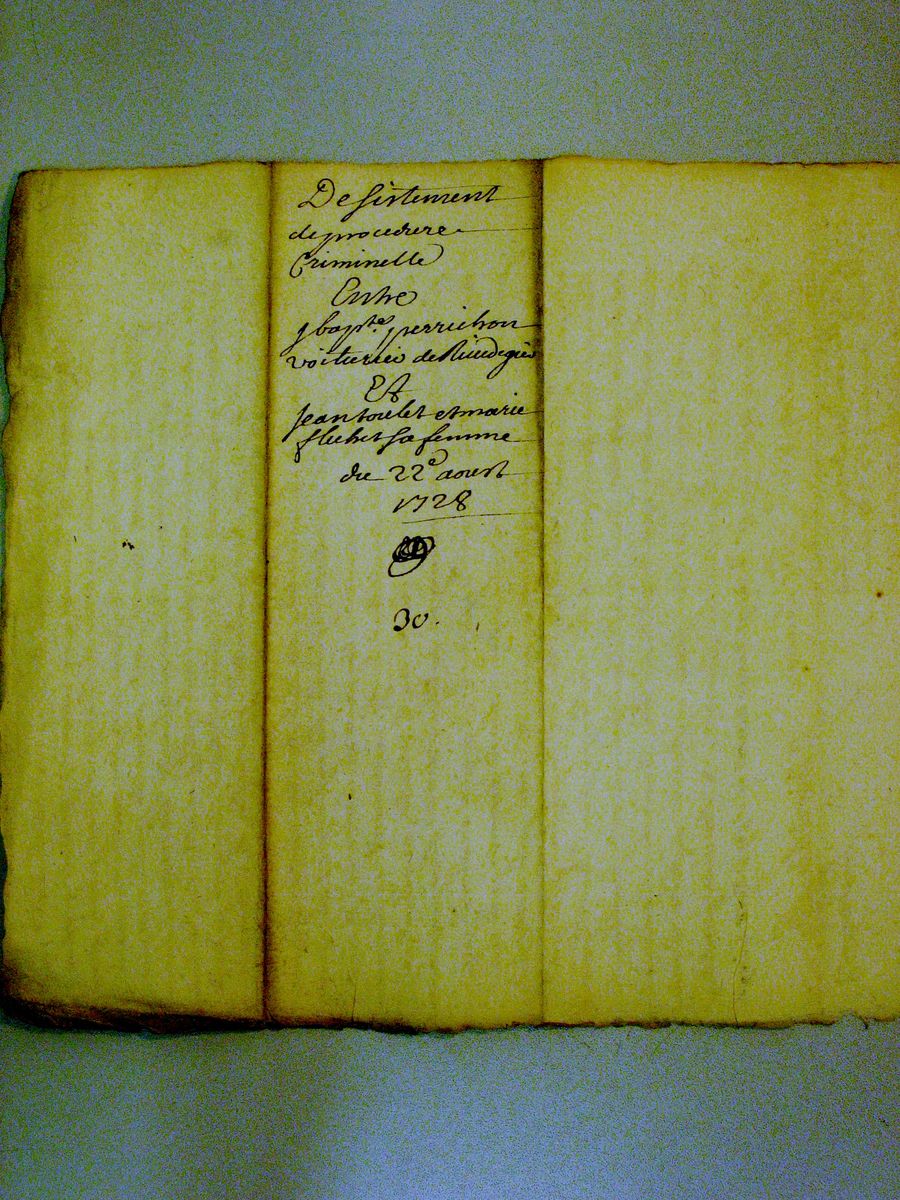 Desistement
de procedure
Criminelle
Entre
J bapte. perrichon
voiturier de Rivedegier
Et
Jean toulet et marie
flichet sa femme
du 22e aoust
1728
30.